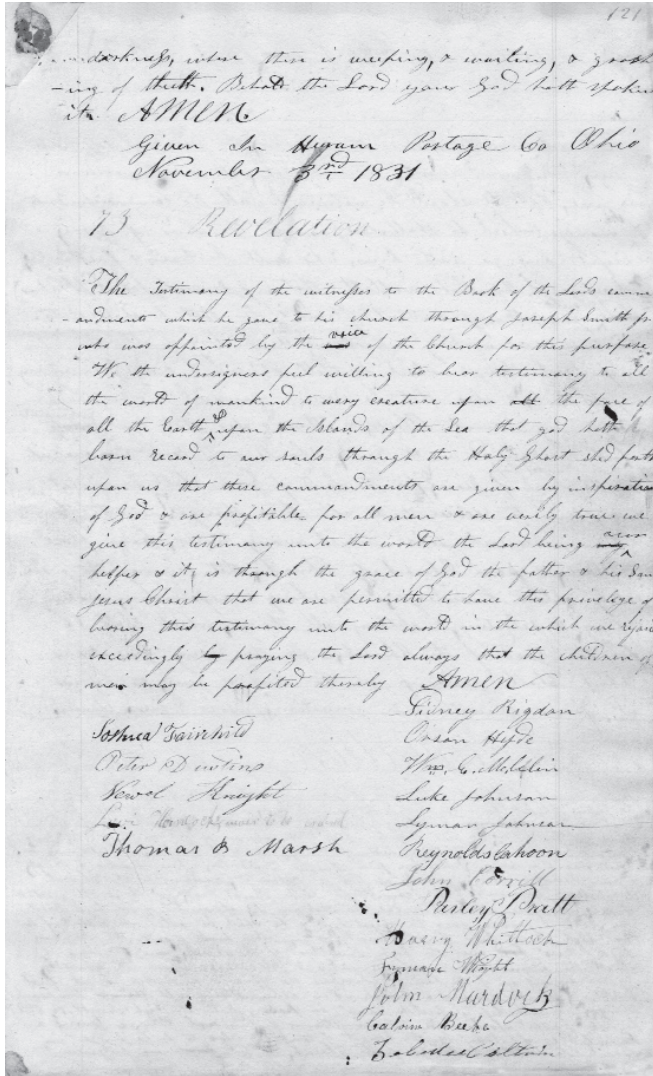 121
darkness, where there is weeping, & wailing, & gnash
-ing of theeth. Behold the Lord your God hath spoken
it. AMEN
Given In Hyram Portage Co Ohio
November 3rd 1831
73 Revelation
The Testimony of the witnesses to the Book of the Lords comm
-andments which he gave to his church through Joseph Smith jr
who was appointed by the voice of the Church for this purpose
We the undersigners feel willing to bear testimony to all
the world of mankind to every creature upon the face of
all the Earth & upon the Islands of the Sea that god hath
born record to our souls through the Holy Ghost shed forth
upon us that these commandments are given by inspiration
of God & are profitable for all men & are verily true we
give this testimony unto the world the Lord being our
helper & it is through the grace of God the father & his Son
Jesus Christ that we are permitted to have this privelege of
bearing this testimony unto the world in the which we rejoice
exceedingly praying the Lord always that the children of
men may be profited thereby AMEN
Sidney Rigdon
Joshua Fairchild Orson Hyde
Peter Dustin Wm. E. McLelin
Newel Knight Luke Johnson
Levi Hancock Lyman Johnson
Thomas B Marsh Reynolds Cahoon
John Corrill
Parley Pratt
Harvey Whitlock
Lyman Wight
John Murdock
Calvin Beebe
Zebedee Coltrin